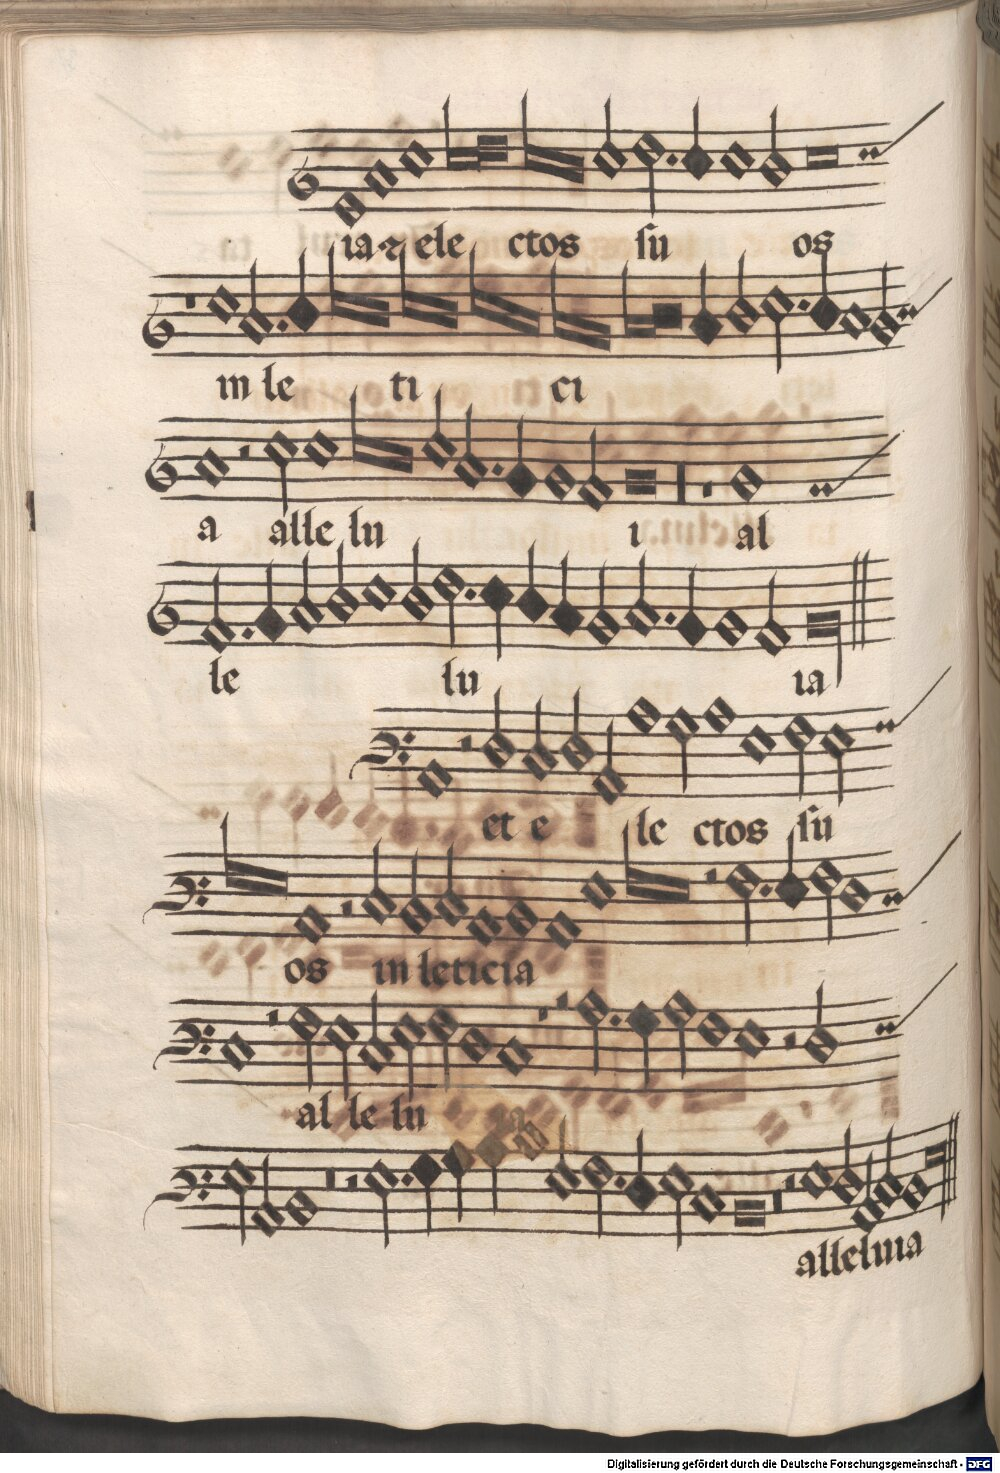 ia ⁊ ele ctos su os
in le ti ci
a alle lu i al
le lu ia
et e le ctos su
os in leticia
al le lu ia
alleluia
Digitalisierung gefördert durch die Deutsche Forschungsgemeinschaft - DFG